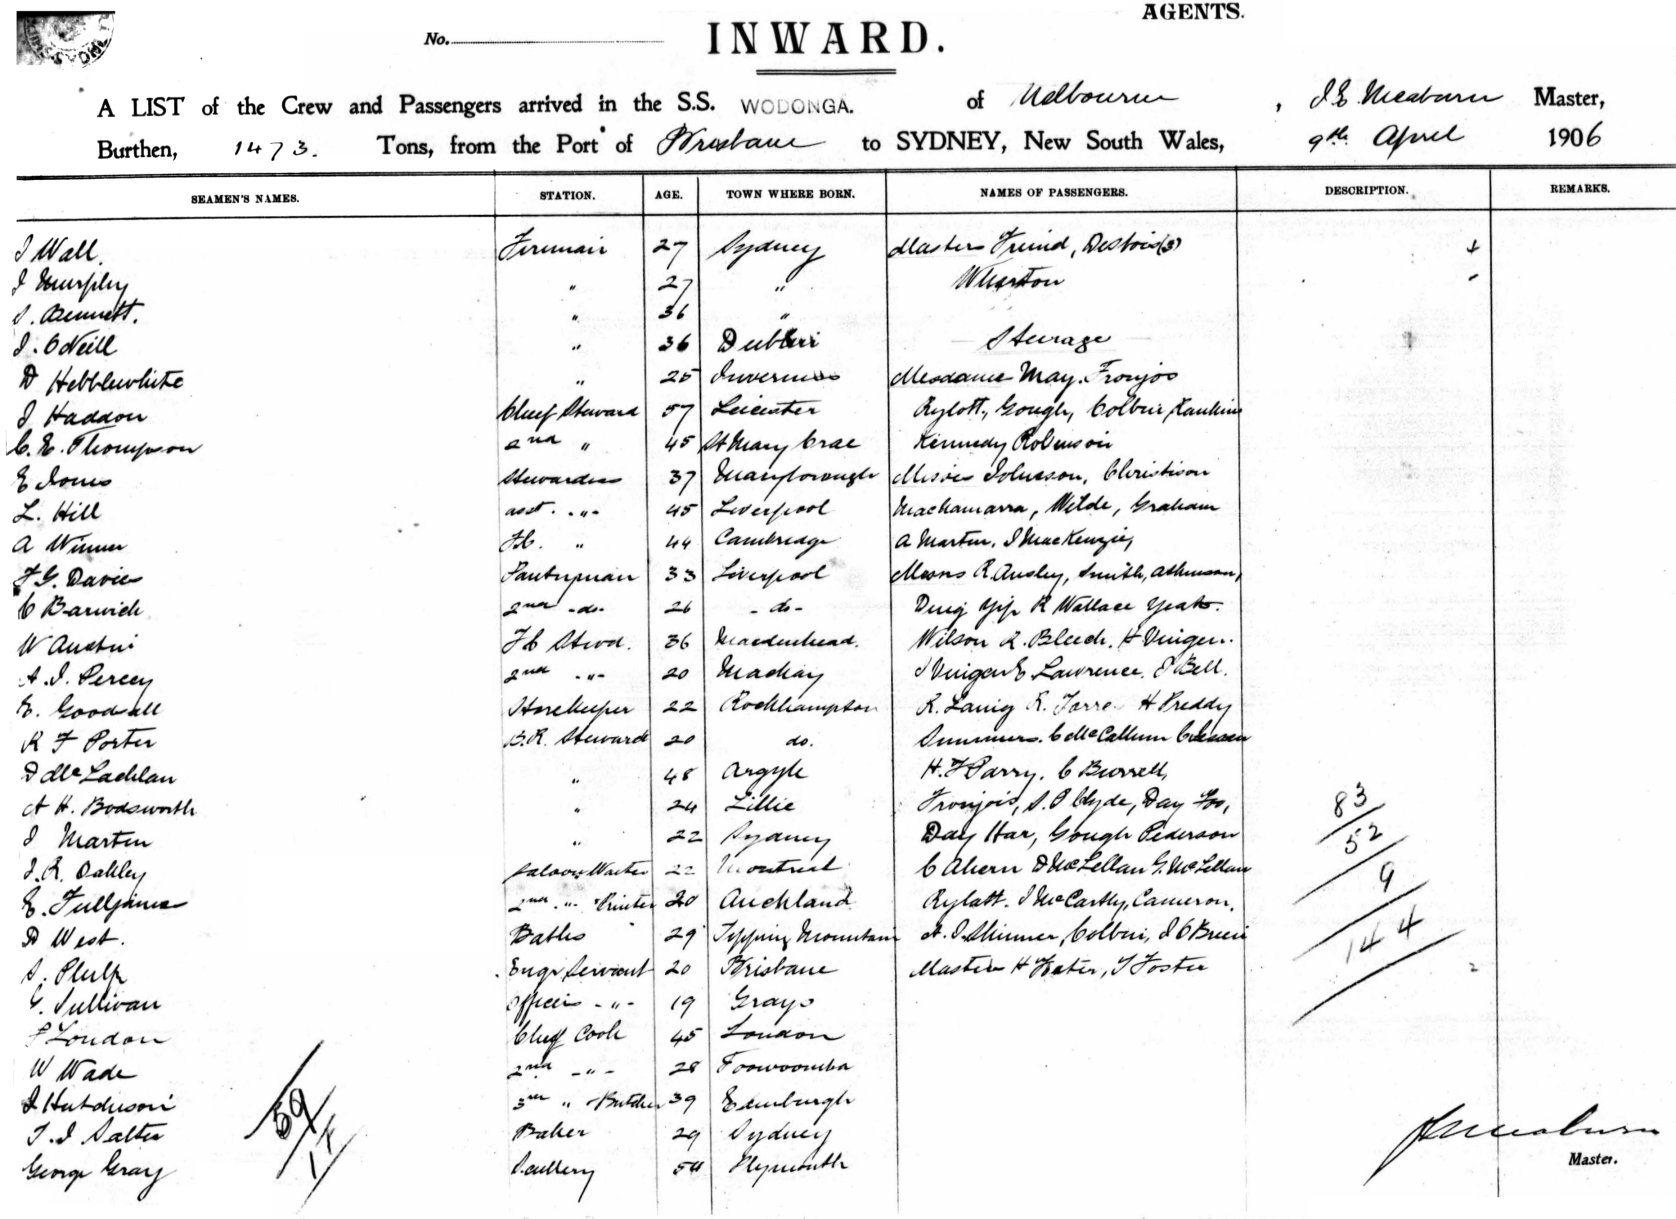 AGENTS.
No. INWARD.
A LIST of the Crew and Passengers arrived in the S.S. WODONGA. of Melbourne, J E Meaburn Master,
Burthen, 1473. Tons, from the Port of Brisbane to SYDNEY, New South Wales, 9th April 1906
SEAMEN'S NAMES. STATION. AGE. TOWN WHERE BORN. NAMES OF PASSENGERS. DESCRIPTION. REMARKS.
J Wall. Fireman 27 Sydney Masters Friend, (3)
J Murphy " 27 " Wharton
S. Bennett. " 36 "
J. O'Neill " 36 Dublin Steerage
D Hebblewhite " 25 Inverness Mesdames May. Froujos
J Haddon Chief Steward 57 Leicester Rylott, Gough, Colbin, Rankine
C. E. Thompson 2nd " 45 St Mary Crae Kennedy Robinson
E Jones Stewardess 37 Maryborough Misses Johnson, Christison
L. Hill asst. " 45 Liverpool Machamarra, Wilde, Graham
A Winner F.C. " 44 Cambridge A Martin. J MacKenzie,
F G. Davies Pantryman 33 Liverpool Messrs R. Ansley, Smith, Atkinson,
C Barwick 2nd -do- 26 -do- Ding Yip R Wallace Yeats.
W Austin F C Stwd. 36 Maidenhead. Wilson R. Bleech. H Vinger.
A. J. Percey 2nd " 20 Mackay J Vinger E Lawrence. J Bell.
E. Goodall Storekeeper 22 Rockhampton R. Laing R. Torre H Preddy
R F Porter B.R. Steward 20 do. Summers. C McCallum
D McLachlan " 48 Argyle H. J Parry. C Burrell,
A H. Bodsworth " 24 Lillie Froujois, S. P Clyde, Day Foo,
J Martin " 22 Sydney Day Har, Gough Pederson
J. R. Oakley Saloon Waiter 22 Montreal C Ahern D McLellan G. McLellan
E. Fulljames 2nd " Printer 20 Auckland Rylatt. J McCarthy, Cameron,
D West. Baths 29 Tipping Mountain A. J. Skinner, Colbin, J O'Brien
S. Phelp Engr Servant 20 Brisbane Masters H Foster, J Foster
G. Sullivan Officers " 19 Grays
P London Chief Cook 45 London
W Wade 2nd " 28 Toowoomba
J Hutchison 3rd " & Butcher 39 Edinburgh
T. J Salter Baker 29 Sydney
George Gray Scullery 54 Plymouth
83
52
9
144
59
J E Meaburn
Master.